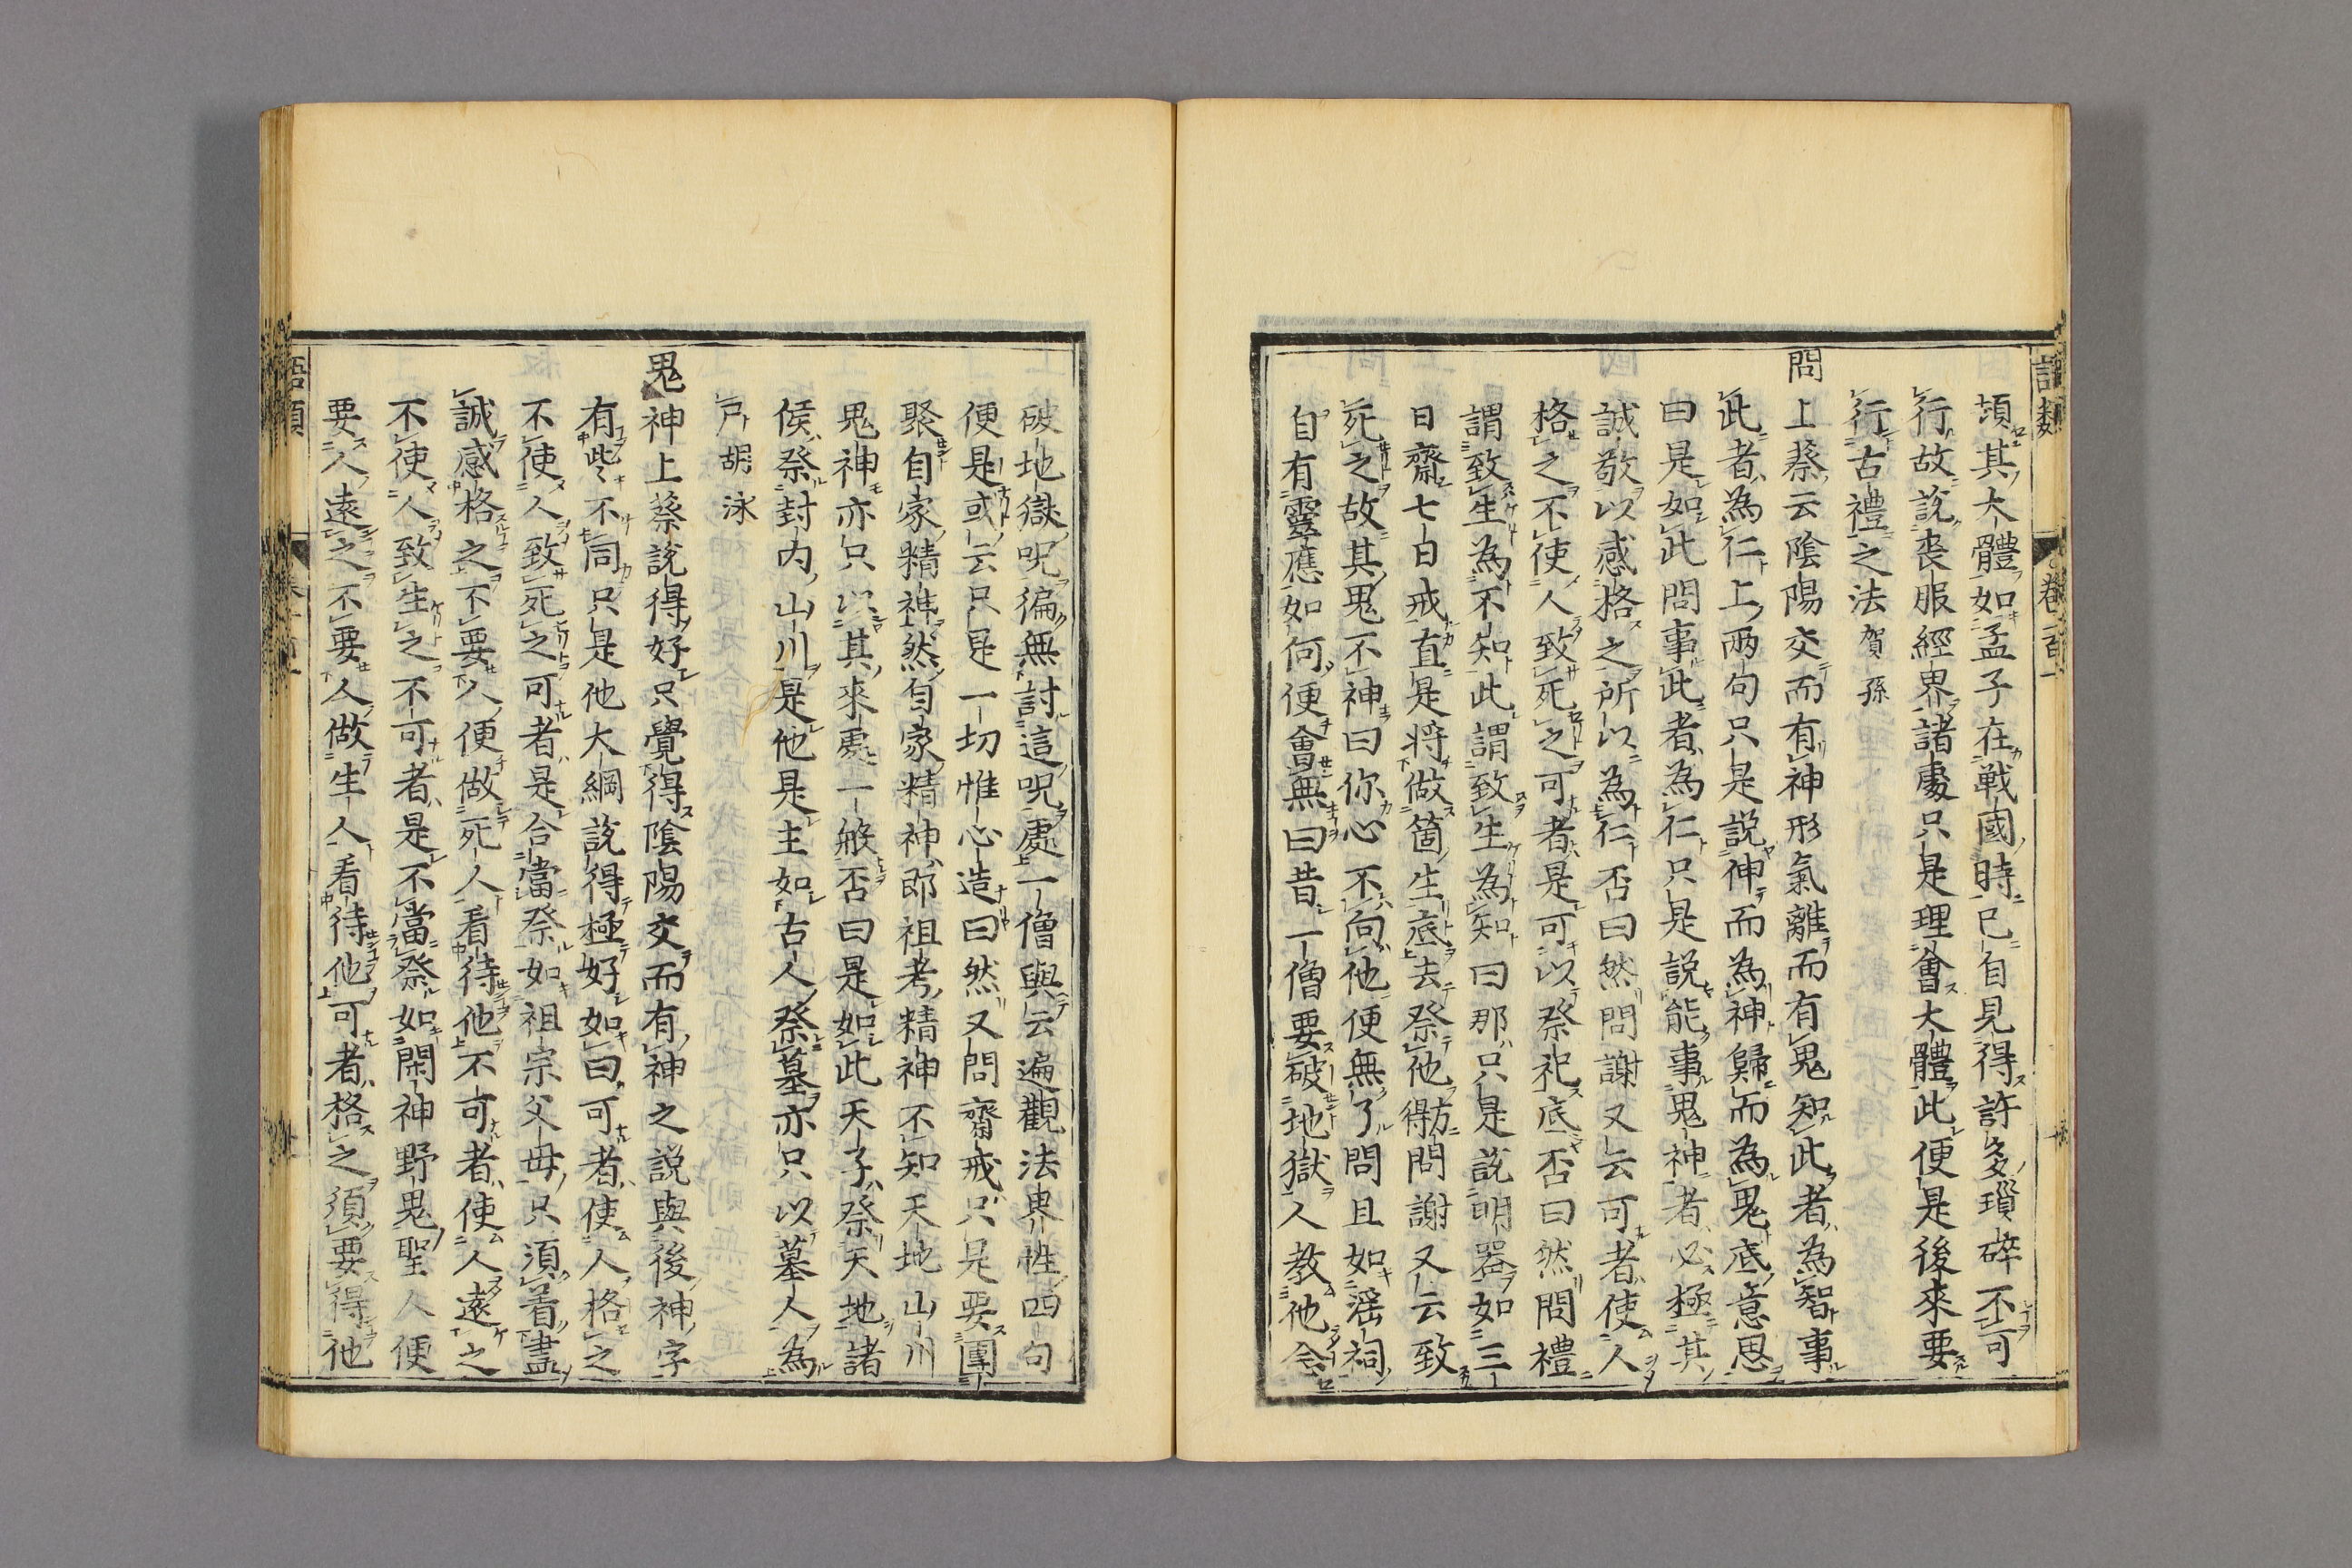 語類 卷一百一
須其大體如孟子在戰國時已自見得許多瑣碎不可
行故說喪服經界諸處只是理會大體此便是後來要
行古禮之法賀孫
問上蔡云陰陽交而有神形氣離而有鬼知此者為智事
此者為仁上兩句只是說伸而為神歸而為鬼底意思
曰是如此問事此者為仁只是說能事鬼神者必極其
誠敬以感格之所以為仁否曰然問謝又云可者使人
格之不使人致死之可者是可以祭祀底否曰然問禮
謂致生為不知此謂致生為知曰那只是說明器如三
日齋七日戒直是將做箇生底去祭他方得問謝又云致
死之故其鬼不神曰你心不向他便無了問且如淫祠
自有靈應如何便會無曰昔一僧要破地獄人教他念
破地獄呪徧無討這呪處一僧與云遍觀法界性四句
便是或云只是一切惟心造曰然又問齋戒只是要團
聚自家精神然自家精神即祖考精神不知天地山川
鬼神亦只以其來處一般否曰是如此天子祭天地諸
侯祭封內山川是他是主如古人祭墓亦只以墓人為
尸胡泳
鬼神上蔡說得好只覺得陰陽交而有神之說與後神字
有些不同只是他大綱說得極好如曰可者使人格之
不使人致死之可者是合當祭如祖宗父母只須着盡
誠感格之不要人便做死人看待他不可者使人遠之
不使人致生之不可者是不當祭如閑神野鬼聖人便
要人遠之不要人做生人看待他可者格之須要得他
語類